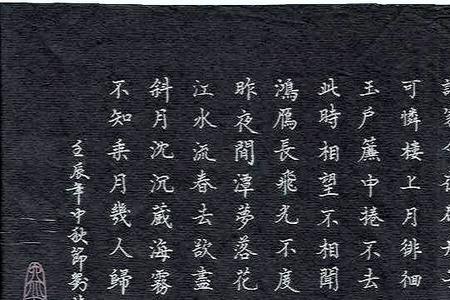 可憐樓上月徘徊
玉戶簾中捲不去
此時相望不相聞
鴻雁長飛光不度
昨夜間潭夢落花
江水流春去欲盡
斜月沈沉蔵海霧
不知乗月幾人歸
壬辰年中秋節